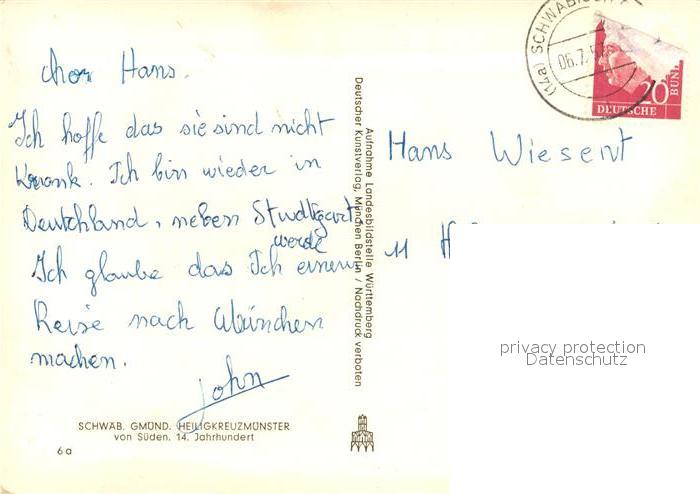 cher Hans.
Ich hoffe das sie sind nicht
Krank. Ich bin wieder in
Deutchland, neben Studtgart
werde
Ich glaube das Ich einen
Reise nach München
machen.
John
SCHWÄB. GMÜND. HEILIGKREUZMÜNSTER
von Süden. 14. Jahrhundert
6a
Aufnahme Landesbildstelle Württemberg
Deutscher Kunstverlag, München Berlin / Nachdruck verboten
(14a) SCHWÄBISCH
06.7.
20
BUN
DEUTSCHE
Hans Wiesent
11 H
privacy protection
Datenschutz